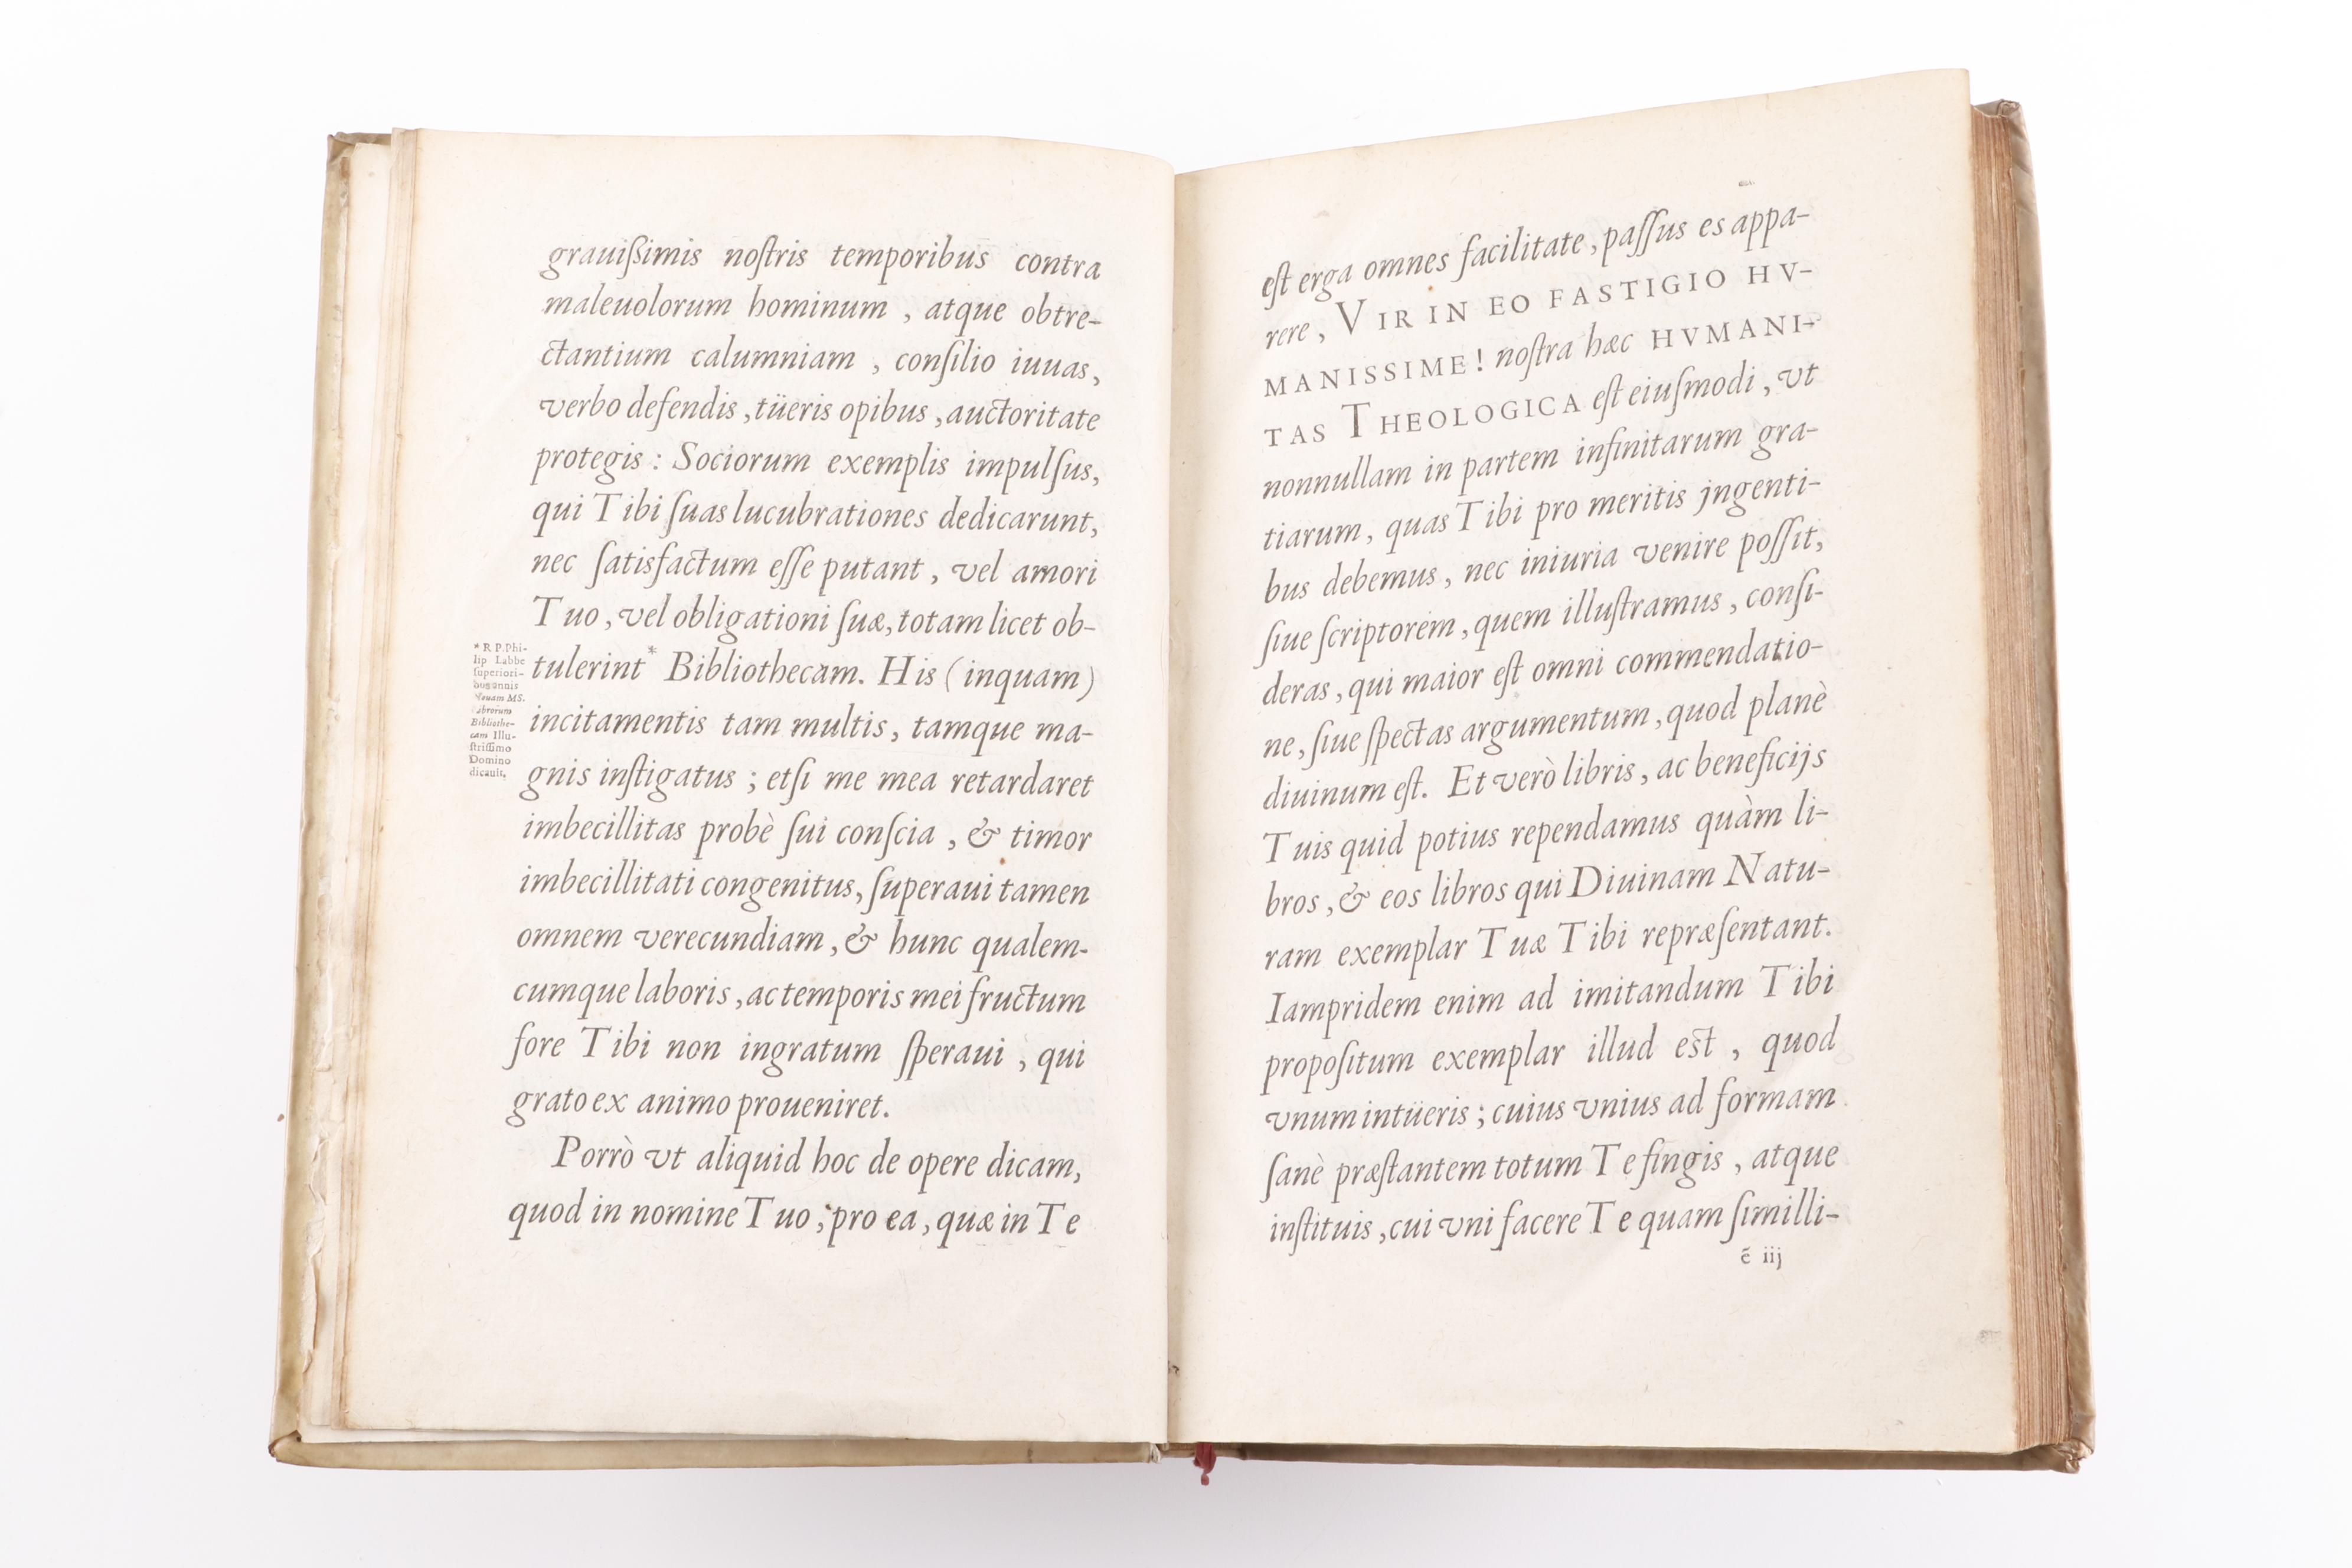 grauißimis noſtris temporibus contra
maleuolorum hominum , atque obtre-
ctantium calumniam , conſilio iuuas,
verbo defendis , tüeris opibus , auctoritate
protegis : Sociorum exemplis impulſus,
qui Tibi ſuas lucubrationes dedicarunt,
nec ſatisfactum eſſe putant , vel amori
Tuo , vel obligationi ſuæ, totam licet ob-
tulerint * Bibliothecam. His ( inquam )
incitamentis tam multis, tamque ma-
gnis inſtigatus ; etſi me mea retardaret
imbecillitas probè ſui conſcia , & timor
imbecillitati congenitus, ſuperaui tamen
omnem verecundiam , & hunc qualem-
cumque laboris , ac temporis mei fructum
fore Tibi non ingratum ſperaui , qui
grato ex animo proueniret.
Porrò vt aliquid hoc de opere dicam,
quod in nomine Tuo , pro ea , quæ in Te
* R P. Phi-
lip Labbe
ſuperiori-
bus annis
Nouam MS.
Librorum
Bibliothe-
cam Illu-
ſtriſſimo
Domino
dicauit.
eſt erga omnes facilitate , paſſus es appa-
rere , VIR IN EO FASTIGIO HV-
MANISSIME ! noſtra hæc HVMANI-
TAS THEOLOGICA eſt eiuſmodi , vt
nonnullam in partem infinitarum gra-
tiarum , quas Tibi pro meritis jngenti-
bus debemus , nec iniuria venire poſſit,
ſiue ſcriptorem , quem illuſtramus , conſi-
deras , qui maior eſt omni commendatio-
ne , ſiue ſpectas argumentum , quod planè
diuinum eſt. Et verò libris , ac beneficijs
Tuis quid potius rependamus quàm li-
bros , & eos libros qui Diuinam Natu-
ram exemplar Tuæ Tibi repræſentant.
Iampridem enim ad imitandum Tibi
propoſitum exemplar illud est , quod
vnum intüeris ; cuius vnius ad formam
ſanè præſtantem totum Te fingis , atque
inſtituis , cui vni facere Te quam ſimilli-
ẽ iij